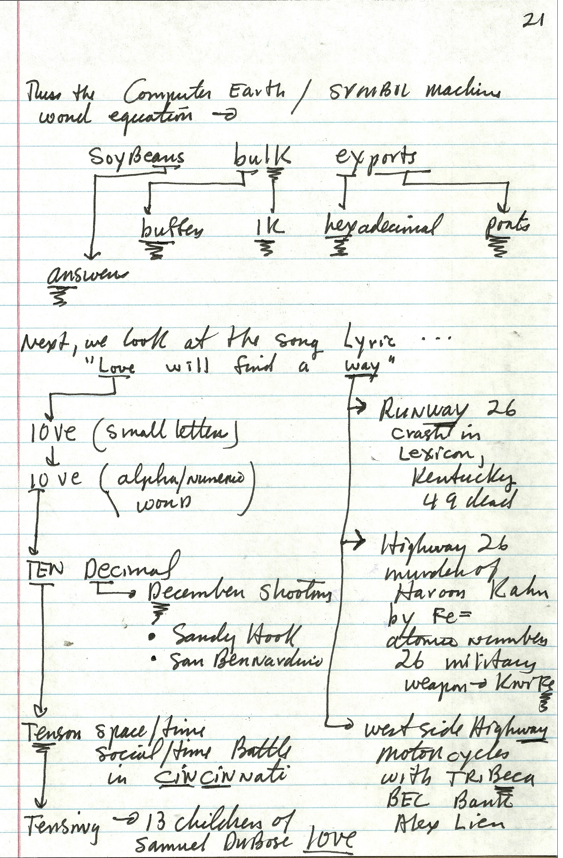 21
Thus the Computer Earth / SYMBOL machine
word equation →
SoyBeans bulk exports
buffer 1K hexadecimal ports
answers
Next, we look at the song Lyric ...
"Love will find a way"
love (small letter)
10 ve (alpha/numeric
word)
TEN Decimal
December shooting
• Sandy Hook
• San Bernardino
Tenson space/time
social/time Battle
in CINCINNati
Tensing → 13 children of
Samuel DuBose LOVE
RUNWAY 26
crash in
Lexicon,
Kentucky
49 dead
Highway 26
murder of
Haroon Kahn
by Fe=
atomic number
26 military
weapon → KniFe
west side Highway
motorcycles
with TRiBeca
BEC
Alex Lien